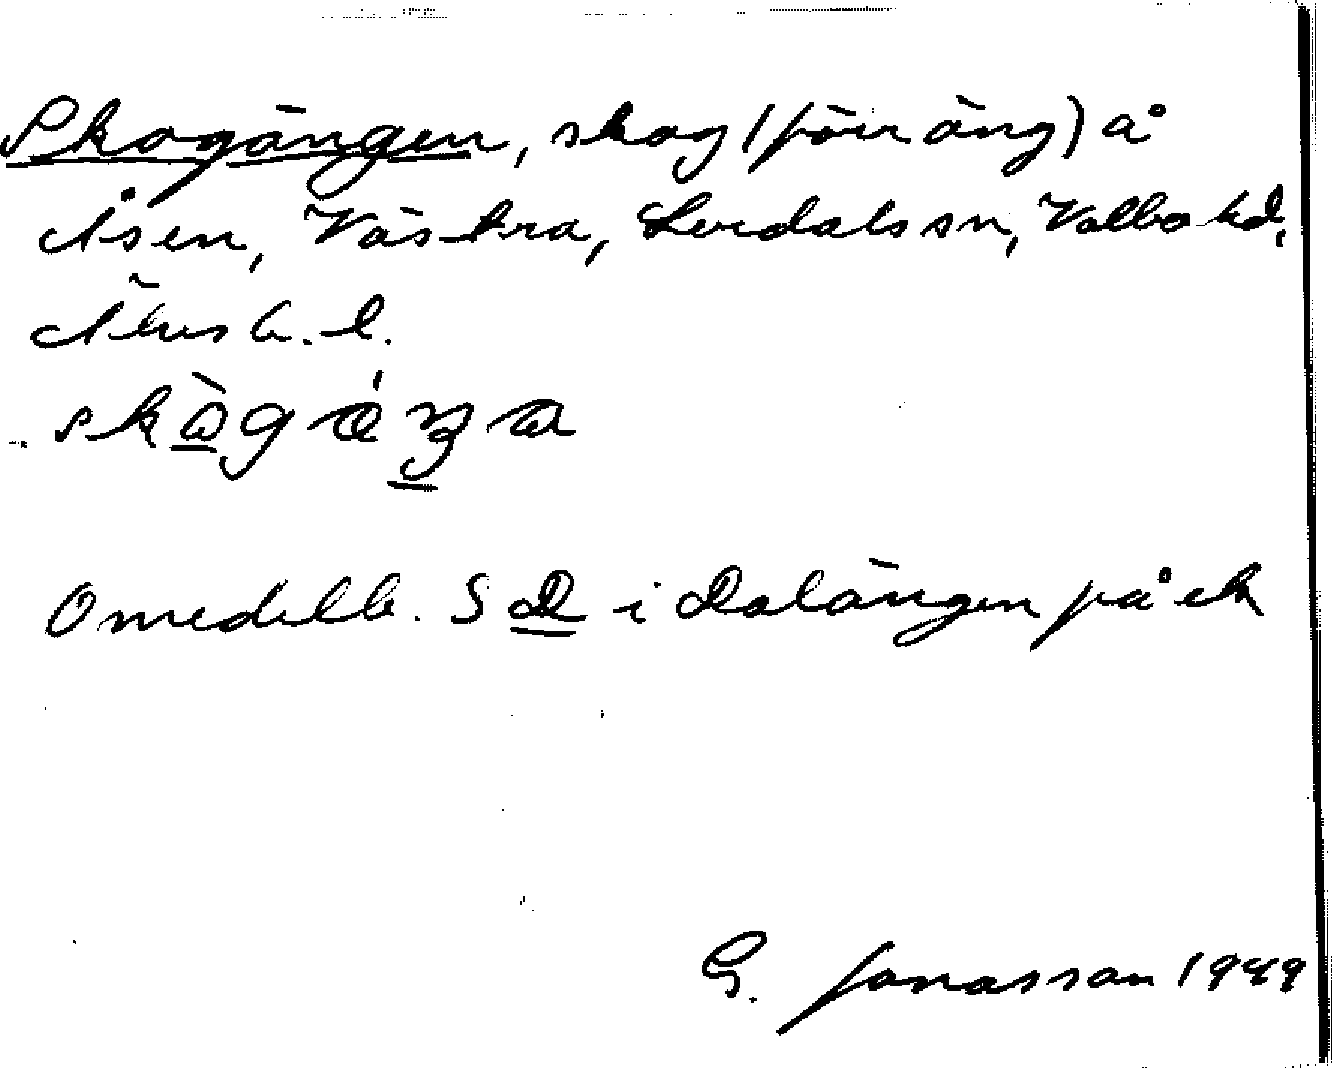 Skogängen, skog (förr äng) å
Åsen, Västra, Lerdals sn, Valbo hd,
Älvsb. l.
skògáŋa
Omedelb. S D i Dalängen på ek
G. Jonasson 1949